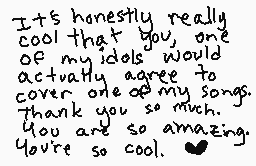 It's honestly really
cool that you, one
of my idols would
actually agree to
cover one of my songs.
Thank you so much.
You are so amazing.
You're so cool. ♥